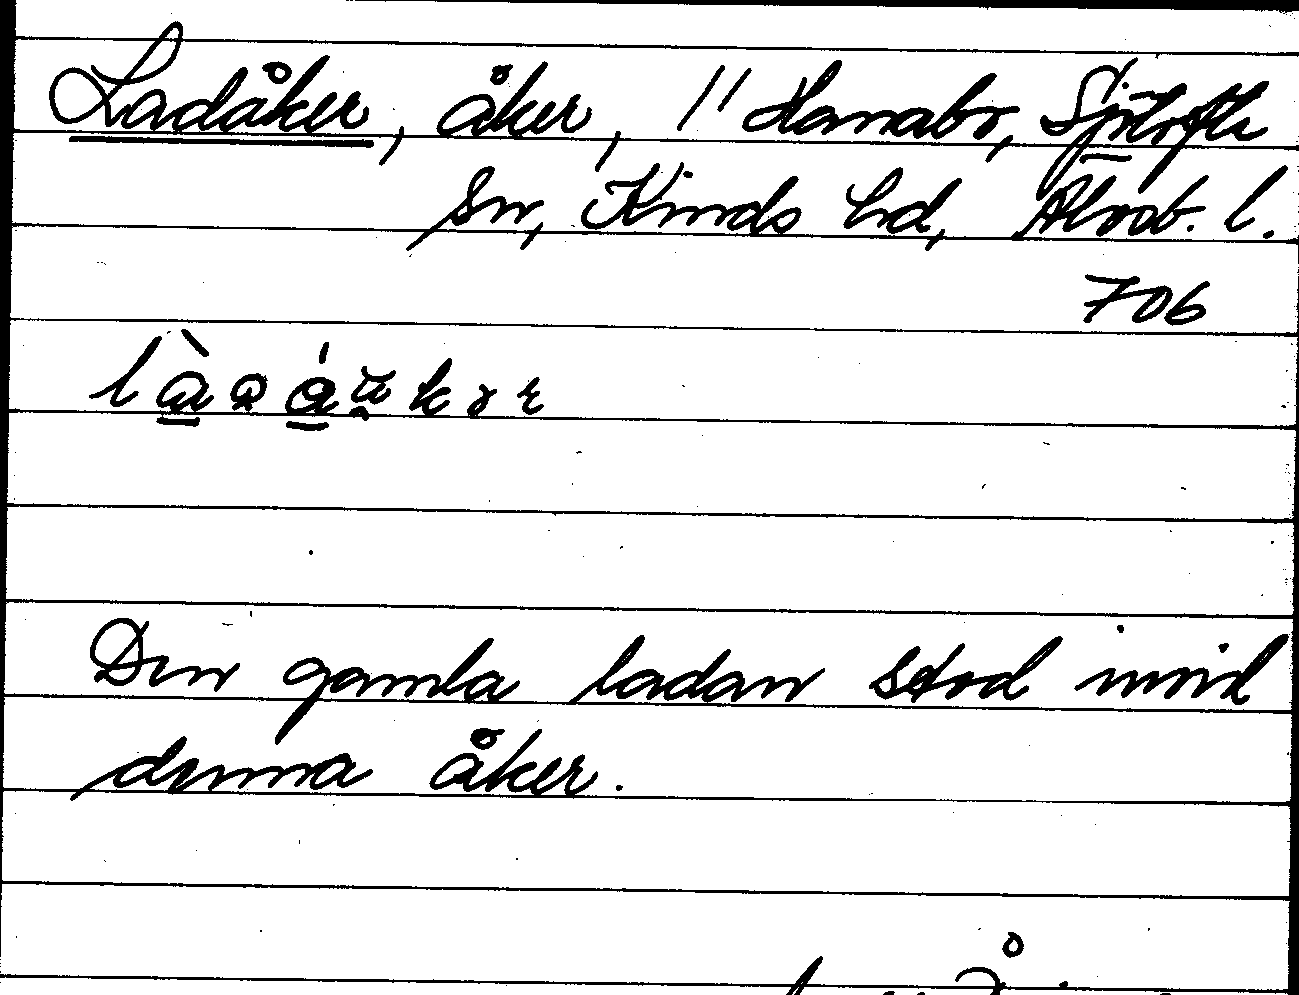 Ladåker, åker, 1/1 Hanabo, Sjötofta
sn, Kinds hd, Älvsb. l.
706
Den gamla ladan stod invid
denna åker.